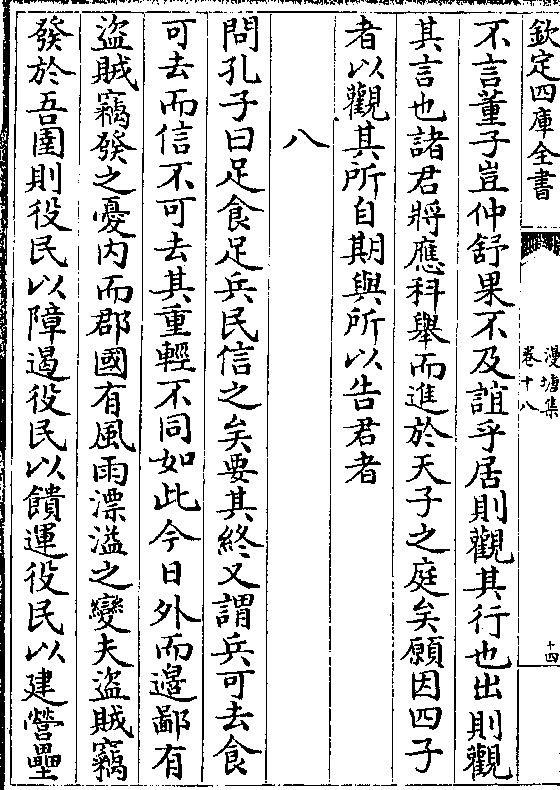 欽定四庫全書
漫塘集
卷十八
十四
不言董子豈仲舒果不及誼乎居則觀其行也出則觀
其言也諸君將應科舉而進於天子之庭矣願因四子
者以觀其所自期與所以告君者
八
問孔子曰足食足兵民信之矣要其終又謂兵可去食
可去而信不可去其重輕不同如此今日外而邊鄙有
盜賊竊發之憂内而郡國有風雨漂溢之變夫盜賊竊
發於吾圉則役民以障遏役民以饋運役民以建營壘